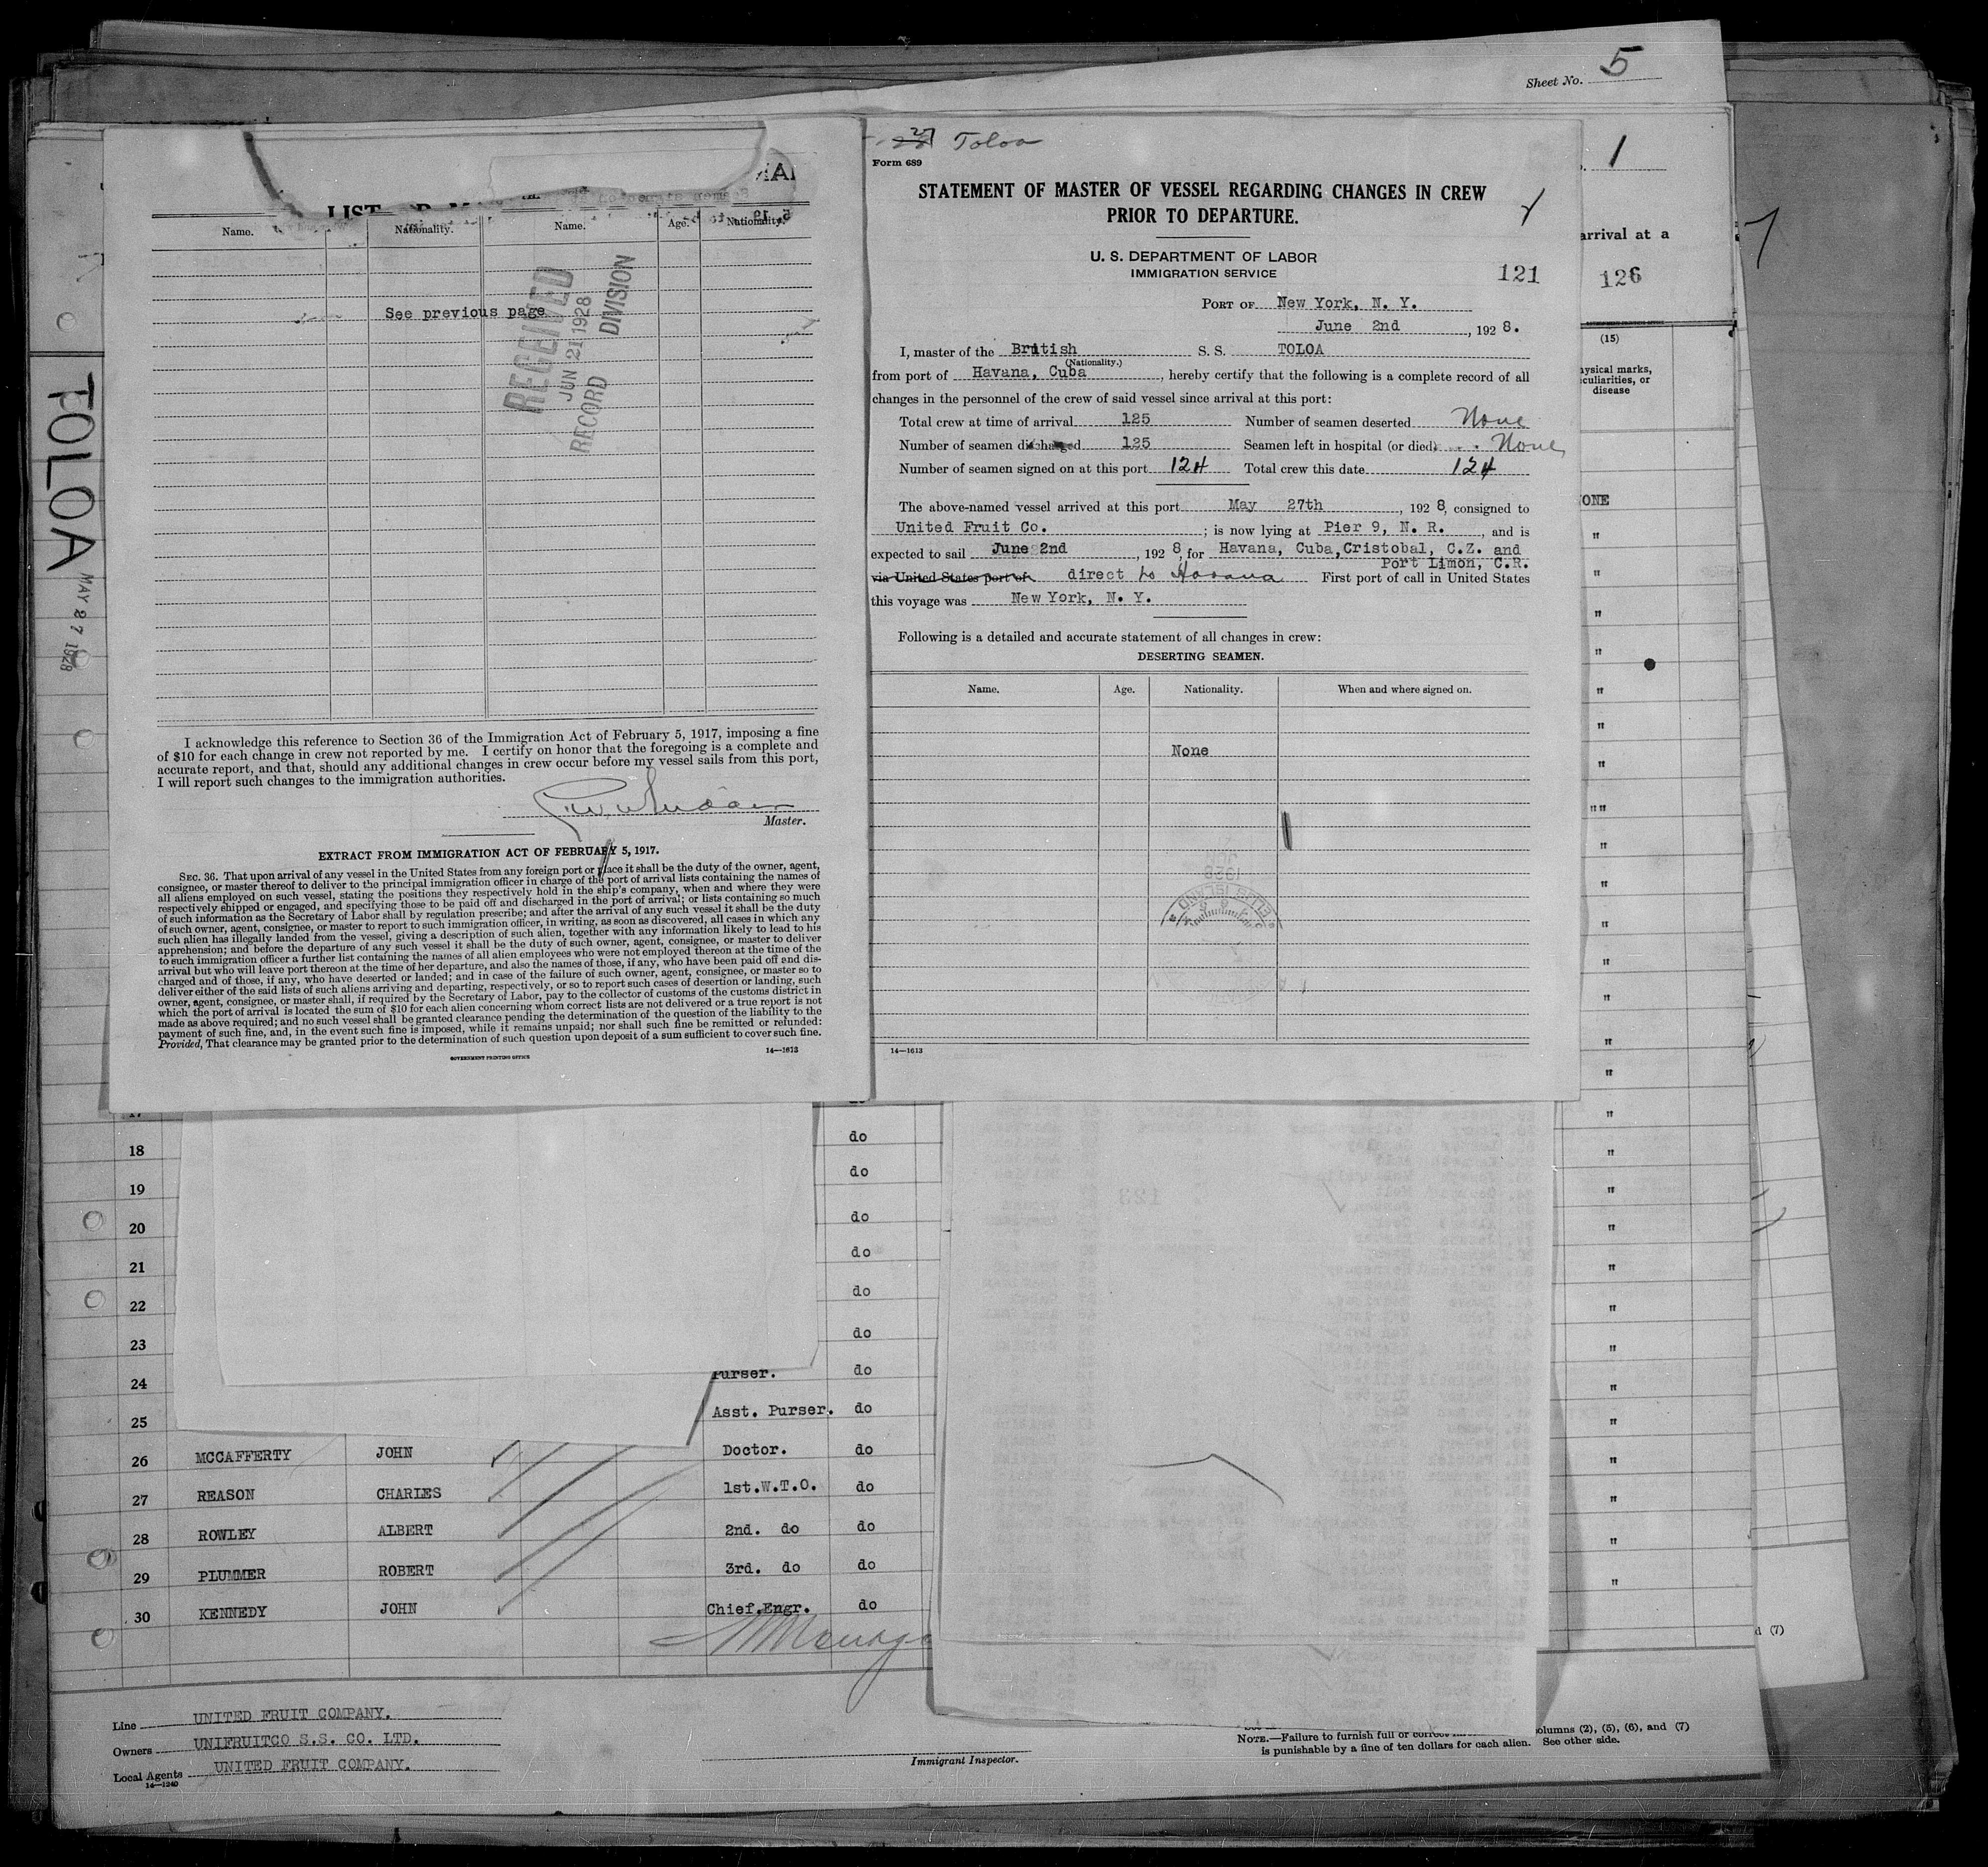 Sheet No. 5
1
arrival at a
126
(15)
TOLOA
MAY 27 1928
Name.
Nationality.
Name.
Age.
Nationality.
See previous page
RECEIVED
JUN 21 1928
RECORD DIVISION
I acknowledge this reference to Section 36 of the Immigration Act of February 5, 1917, imposing a fine
of $10 for each change in crew not reported by me. I certify on honor that the foregoing is a complete and
accurate report, and that, should any additional changes in crew occur before my vessel sails from this port,
I will report such changes to the immigration authorities.
Master.
EXTRACT FROM IMMIGRATION ACT OF FEBRUARY 5, 1917.
SEC. 36. That upon arrival of any vessel in the United States from any foreign port or place it shall be the duty of the owner, agent,
consignee, or master thereof to deliver to the principal immigration officer in charge of the port of arrival lists containing the names of
all aliens employed on such vessel, stating the positions they respectively hold in the ship's company, when and where they were
respectively shipped or engaged, and specifying those to be paid off and discharged in the port of arrival; or lists containing so much
of such information as the Secretary of Labor shall by regulation prescribe; and after the arrival of any such vessel it shall be the duty
of such owner, agent, consignee, or master to report to such immigration officer, in writing, as soon as discovered, all cases in which any
such alien has illegally landed from the vessel, giving a description of such alien, together with any information likely to lead to his
apprehension; and before the departure of any such vessel it shall be the duty of such owner, agent, consignee, or master to deliver
to such immigration officer a further list containing the names of all alien employees who were not employed thereon at the time of the
arrival but who will leave port thereon at the time of her departure, and also the names of those, if any, who have been paid off and dis-
charged and of those, if any, who have deserted or landed; and in case of the failure of such owner, agent, consignee, or master so to
deliver either of the said lists of such aliens arriving and departing, respectively, or so to report such cases of desertion or landing, such
owner, agent, consignee, or master shall, if required by the Secretary of Labor, pay to the collector of customs of the customs district in
which the port of arrival is located the sum of $10 for each alien concerning whom correct lists are not delivered or a true report is not
made as above required; and no such vessel shall be granted clearance pending the determination of the question of the liability to the
payment of such fine, and, in the event such fine is imposed, while it remains unpaid; nor shall such fine be remitted or refunded:
Provided, That clearance may be granted prior to the determination of such question upon deposit of a sum sufficient to cover such fine.
GOVERNMENT PRINTING OFFICE
14—1613
27 Toloa
Form 689
STATEMENT OF MASTER OF VESSEL REGARDING CHANGES IN CREW
PRIOR TO DEPARTURE.
U. S. DEPARTMENT OF LABOR
IMMIGRATION SERVICE
121
PORT OF New York, N. Y.
June 2nd, 1928.
I, master of the British S. S. TOLOA
(Nationality.)
from port of Havana, Cuba, hereby certify that the following is a complete record of all
changes in the personnel of the crew of said vessel since arrival at this port:
Total crew at time of arrival 125 Number of seamen deserted None
Number of seamen discharged 125 Seamen left in hospital (or died) None
Number of seamen signed on at this port 124 Total crew this date 124
The above-named vessel arrived at this port May 27th, 1928, consigned to
United Fruit Co.; is now lying at Pier 9, N. R., and is
expected to sail June 2nd, 1928, for Havana, Cuba, Cristobal, C.Z. and
Port Limon, C.R.
via United States port of direct to Havana First port of call in United States
this voyage was New York, N. Y.
Following is a detailed and accurate statement of all changes in crew:
DESERTING SEAMEN.
Name. Age. Nationality. When and where signed on.
None
14—1613
18 do
19 do
20 do
21 do
22 do
23 do
24 Purser. do
25 Asst. Purser. do
26 MCCAFFERTY JOHN Doctor. do
27 REASON CHARLES 1st.W.T.O. do
28 ROWLEY ALBERT 2nd. do do
29 PLUMMER ROBERT 3rd. do do
30 KENNEDY JOHN Chief.Engr. do
Line UNITED FRUIT COMPANY.
Owners UNIFRUITCO S.S. CO. LTD.
Local Agents UNITED FRUIT COMPANY.
14—1240
Immigrant Inspector.
NOTE.—Failure to furnish full or correct columns (2), (5), (6), and (7)
is punishable by a fine of ten dollars for each alien. See other side.